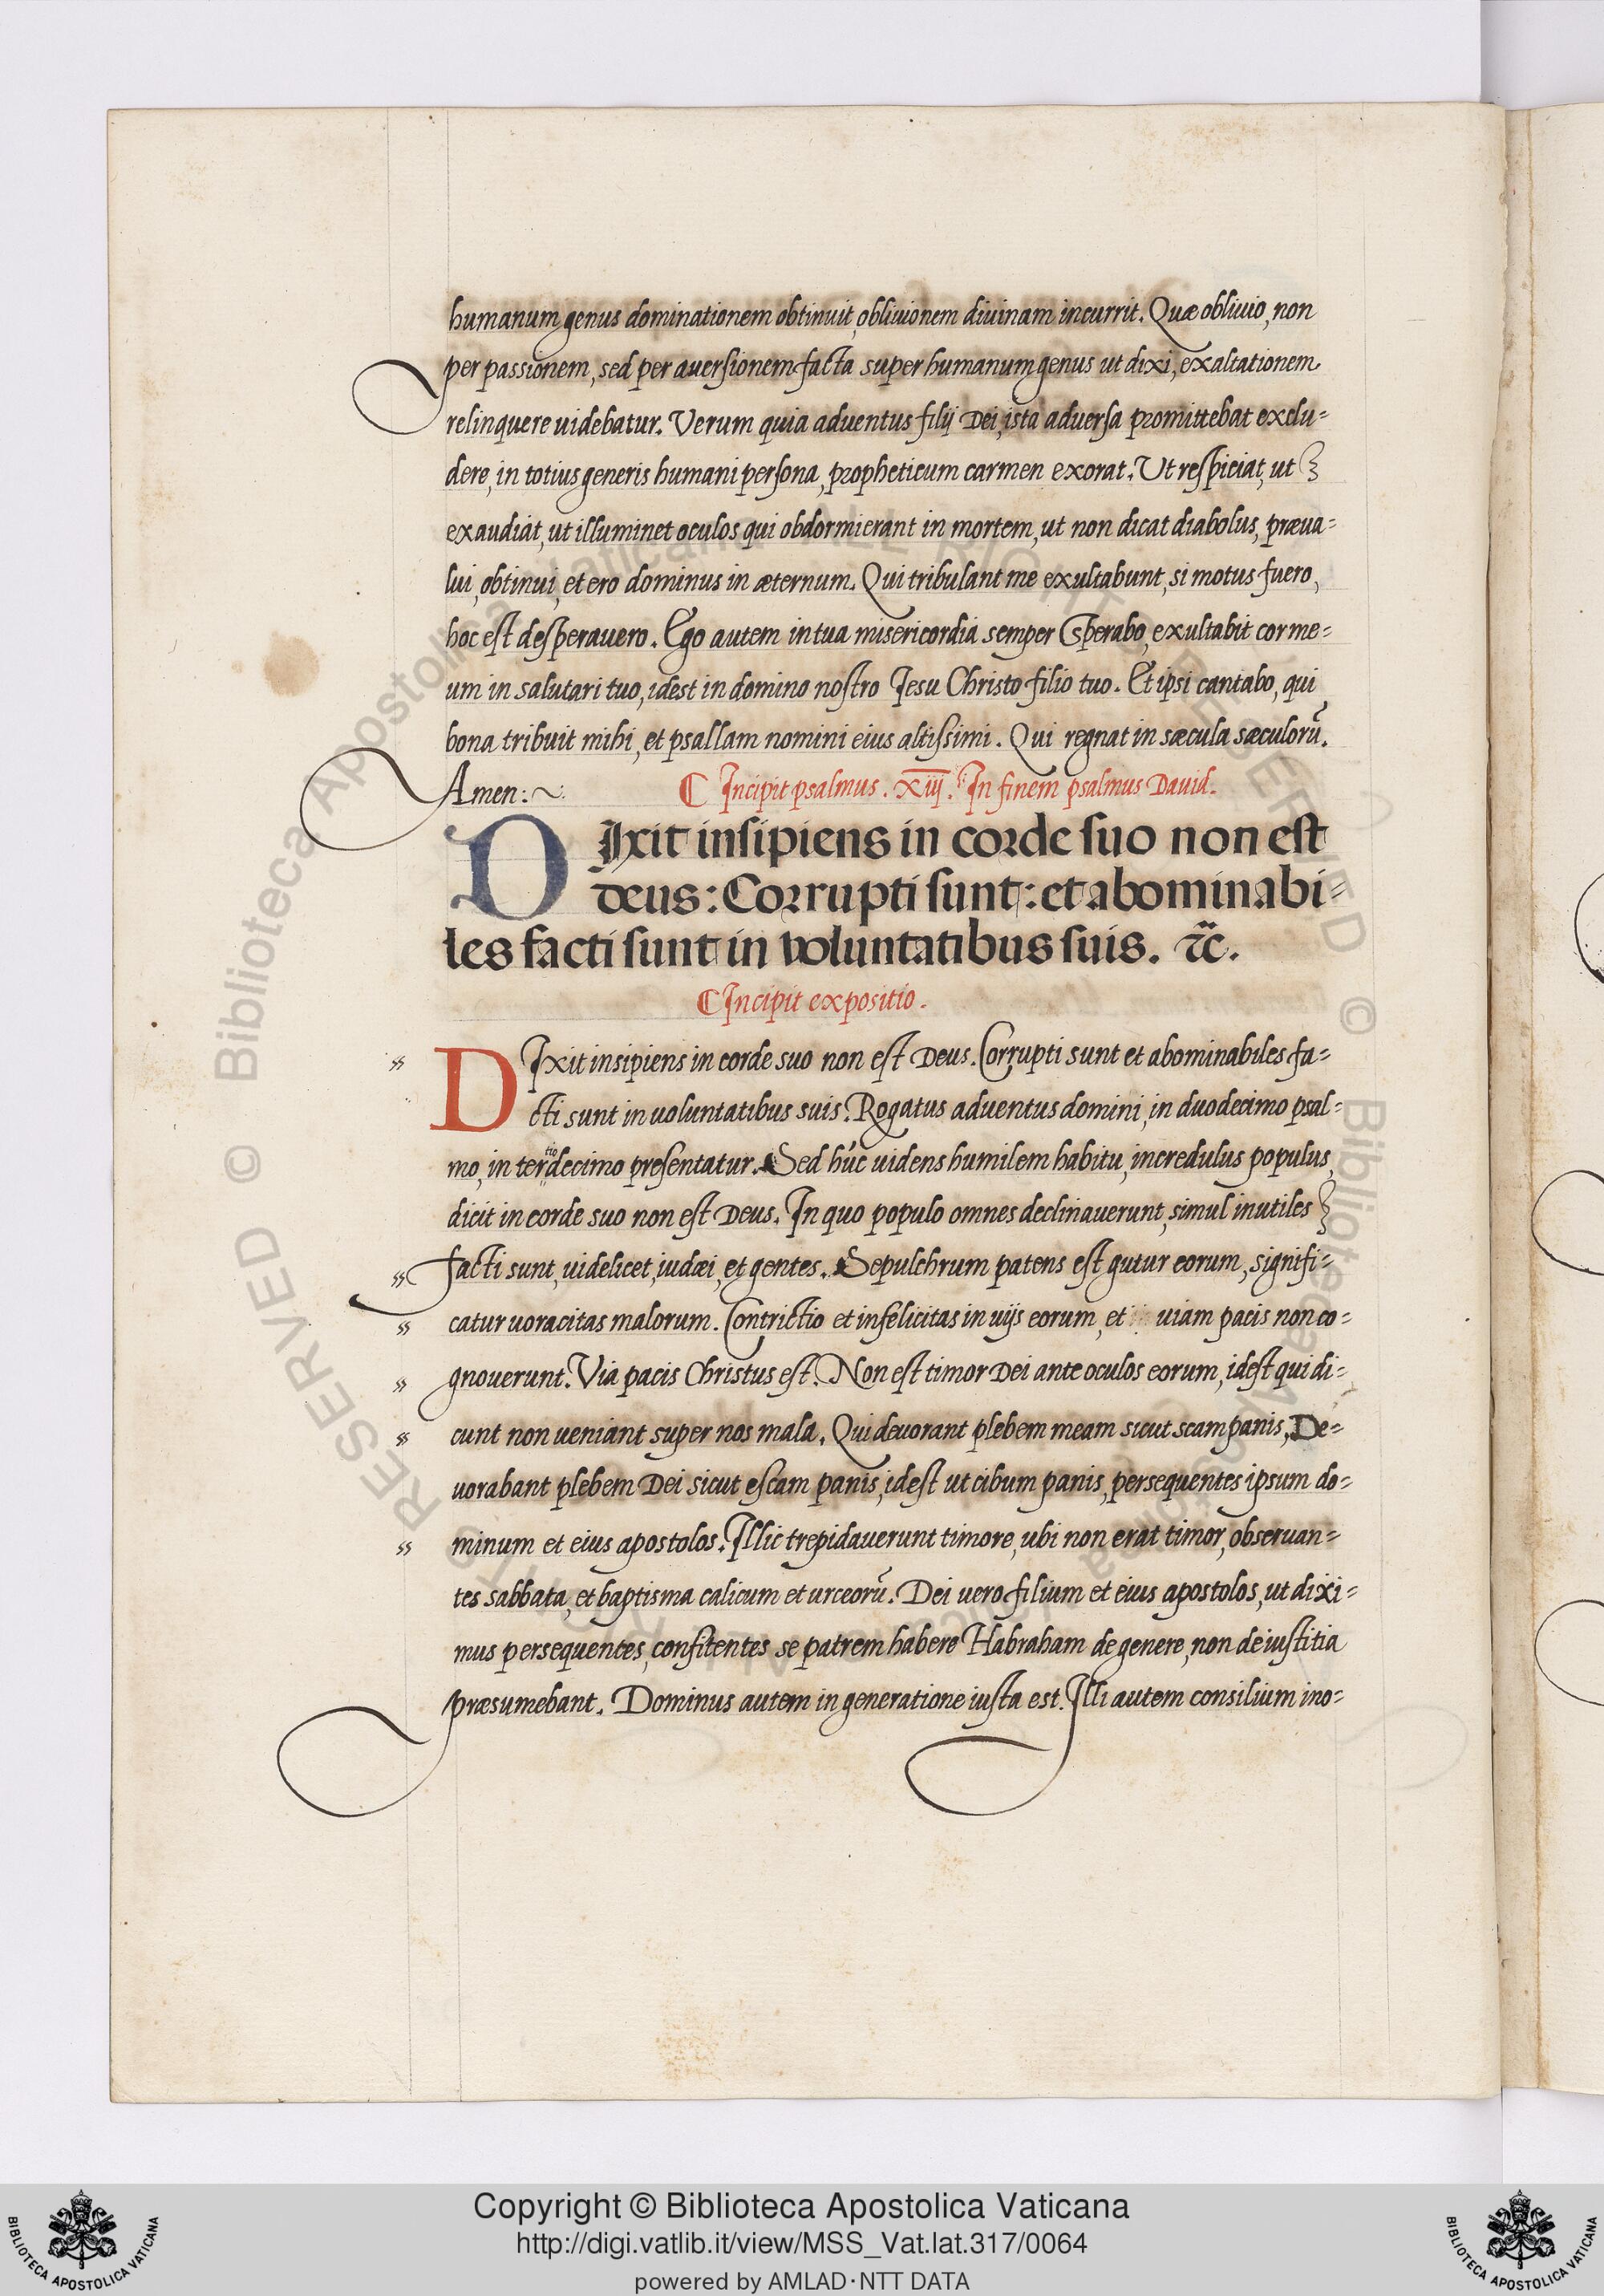 humanum genus dominationem obtinuit, obliuionem diuinam incurrit. Quæ obliuio, non
per passionem, sed per auersionem facta super humanum genus ut dixi, exaltationem
relinquere uidebatur. Verum quia aduentus filij Dei, ista aduersa promittebat exclu=
dere, in totius generis humani persona, propheticum carmen exorat. Ut respiciat, ut
exaudiat, ut illuminet oculos qui obdormierant in mortem, ut non dicat diabolus, præua=
lui, obtinui, et ero dominus in æternum. Qui tribulant me exultabunt, si motus fuero,
hoc est desperauero. Ego autem in tua misericordia semper sperabo, exultabit cor me=
um in salutari tuo, idest in domino nostro Jesu Christo filio tuo. Et ipsi cantabo, qui
bona tribuit mihi, et psallam nomini eius altissimi. Qui regnat in sæcula sæculorũ.
Amen:~
Incipit psalmus. xiij. In finem psalmus Dauid.
DIxit insipiens in corde suo non est
deus: Corrupti sunt: et abominabi=
les facti sunt in voluntatibus suis. &c.
Incipit expositio.
DIxit insipiens in corde suo non est Deus. Corrupti sunt et abominabiles fa=
cti sunt in uoluntatibus suis. Rogatus aduentus domini, in duodecimo psal=
mo, in tertiodecimo presentatur. Sed hũc uidens humilem habitu, incredulus populus,
dicit in corde suo non est Deus. In quo populo omnes declinauerunt, simul inutiles
facti sunt, uidelicet, iudæi, et gentes. Sepulchrum patens est gutur eorum, signifi=
catur uoracitas malorum. Contrictio et infelicitas in uijs eorum, et uiam pacis non co=
gnouerunt. Via pacis Christus est. Non est timor Dei ante oculos eorum, idest qui di=
cunt non ueniant super nos mala. Qui deuorant plebem meam sicut scam panis, De=
uorabant plebem Dei sicut escam panis, idest ut cibum panis, persequentes ipsum do=
minum et eius apostolos. Illic trepidauerunt timore, ubi non erat timor, obseruan=
tes sabbata, et baptisma calicum et urceorũ. Dei uero filium et eius apostolos, ut dixi=
mus persequentes, confitentes se patrem habere Habraham de genere, non de iustitia
præsumebant. Dominus autem in generatione iusta est. Illi autem consilium ino=
Copyright © Biblioteca Apostolica Vaticana
http://digi.vatlib.it/view/MSS_Vat.lat.317/0064
powered by AMLAD·NTT DATA
BIBLIOTECA APOSTOLICA VATICANA
BIBLIOTECA APOSTOLICA VATICANA